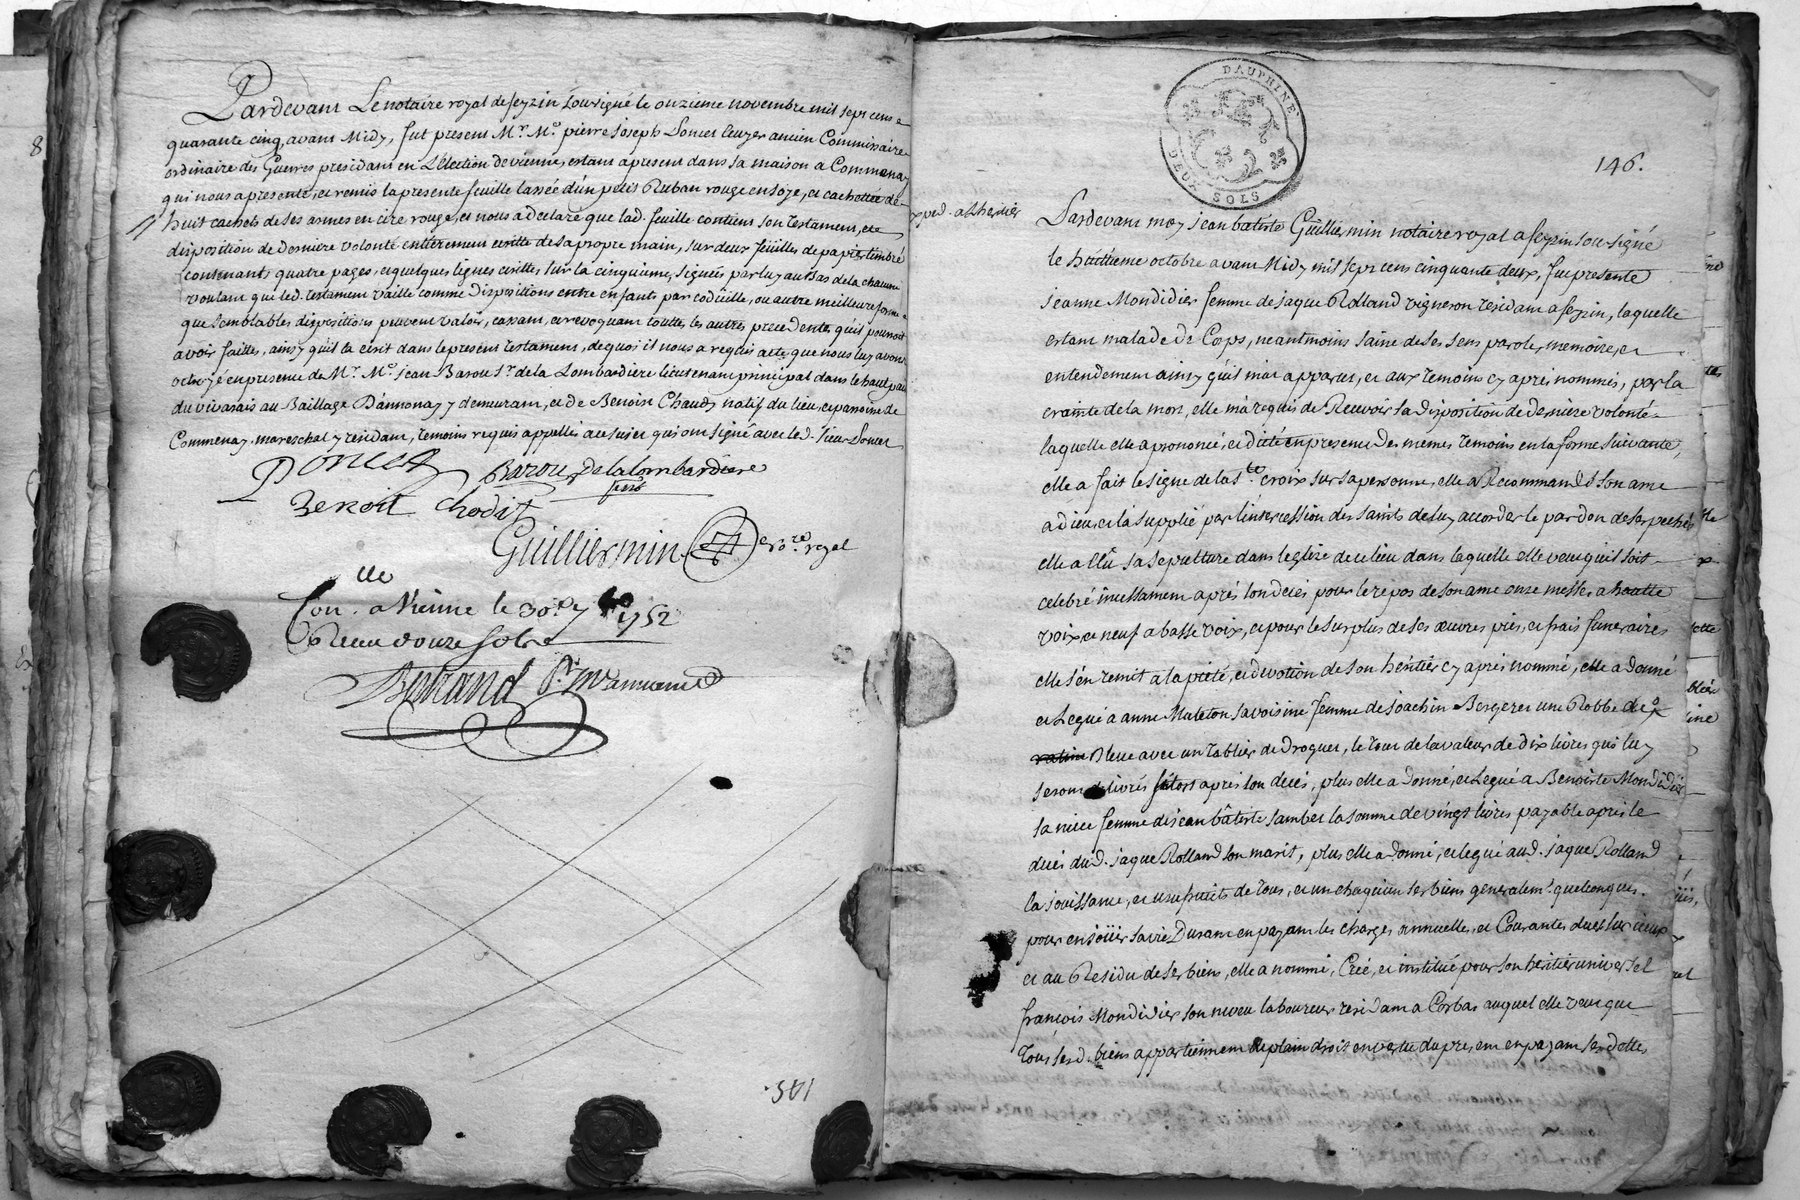 Pardevant Le notaire royal de feyzin soussigné le onzieme novembre mil sept cens
quarante cinq, avant Midy, fut present Mr. Me. pierre joseph Poncet Ecuyer ancien Commissaire
ordinaire des Guerres residant en L'Election de vienne, estant apresent dans sa maison a Commenay
qui nous a presenté, et remis la presente feuille lassée d'un petit Ruban rouge en soye, et cachettée de
huit cachets de ses armes en cire rouge, et nous a declaré que lad. feuille contient son testament, et
disposition de derniere volonté entierement ecritte de sa propre main, sur deux feuilles de papier timbré
contenant quatre pages, et quelques lignes ecrittes sur la cinquieme, signées par luy au Bas de chacune
voulant que led. testament vaille comme dispositions entre enfants par codicille, ou autre meilleure forme
que semblables dispositions peuvent valoir, cassant, et revoquant touttes les autres precedentes qu'il pourroit
avoir faittes, ainsy qu'il la ecrit dans le present testament, de quoi il nous a requis acte, que nous luy avons
octroyé en presence de Mr. Me. jean Barou Sr. de la Lombardiere lieutenant principal dans le haut pais
du vivarais au Baillage D'annonay y demeurant, et de Benoit Chaudy natif du lieu, et paroisse de
Commenay mareschal y residant, temoins requis appellés au susier qui ont signé avec led. sieur Poncet
Poncet Barou de la lombardiere
Benoit chodit
Guilliermin no.re royal
Con.lle a Vienne le 30e. 7bre 1752
Receu douze sols
Bertrand
145.
DAUPHINÉ
DEUX SOLS
146.
exped. a l'heritier
Pardevant moy jean batiste Guilliermin notaire royal a feyzin soussigné
le huitieme octobre avant Midy mil sept cens cinquante deux, fut presente
jeanne Mondidier femme de jaque Rolland vigneron residant a feyzin, laquelle
estant malade de Corps, neantmoins saine de ses sens parole, memoire, et
entendement ainsy qu'il m'a apparut, et aux temoins cy après nommés, par la
crainte de la mort, elle m'a requis de Recevoir sa disposition de derniere volonté
laquelle elle a prononcé, et dicté en presence des memes temoins en la forme suivante,
elle a fait le signe de la Ste. croix sur sa personne, elle a Recommandé son ame
a dieu, et l'a supplié par l'intercession des saints de luy accorder le pardon de ses pechés
elle a Elû sa sepulture dans l'eglise de ce lieu dans laquelle elle veut qu'il soit
celebré incessament après son decès pour le repos de son ame onze messes a hautte
voix, et neuf a basse voix, et pour le surplus de ses œuvres pies, et frais funeraires
elle s'en remet a la pieté, et devotion de son heritier cy après nommé, elle a donné
et Legué a anne Mateton sa voisine femme de joachin Bergeret une Robbe de
ratine Bleue avec un tablier de droguet, le tout de la valeur de dix livres qui luy
seront delivrés sitost après son decès, plus elle a donné, et Legué a Benoiste Mondidier
sa niece femme de jean bâtiste Sambet la somme de vingt livres payable après le
decès dud. jaque Rolland son marit, plus elle a donné, et legué aud. jaque Rolland
la jouissance, et usufruits de tous, et un chaqu'un ses biens generalemt. quelconques
pour en joüir sa vie Durant en payant les charges annuelles, et Courantes dues sur iceux
et au Residu de ses biens, elle a nommé, Créé, et institué pour son heritier universel
françois Mondidier son neveu laboureur residant a Corbas auquel elle veut que
tous sesd. biens appartiennent de plain droit en vertu du present en payant ses dettes